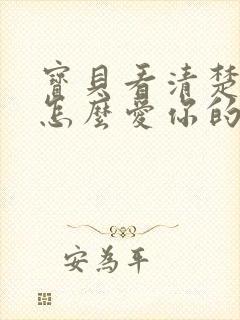 寶貝看清楚
怎麼愛你的
安為平